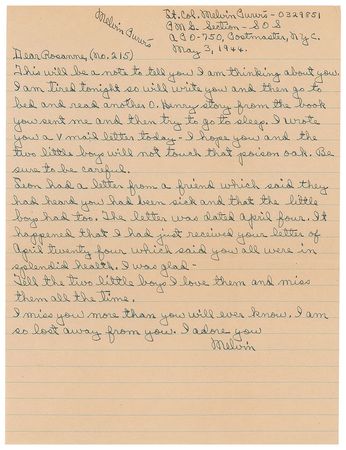 Melvin Purvis
Lt. Col. Melvin Purvis - 0329851
P.M.G. Section - S O S
A P O - 750, Postmaster, N.Y.C.
May 3, 1944.
Dear Rosanne, (No. 215)
This will be a note to tell you I am thinking about you.
I am tired tonight so will write you and then go to
bed and read another O. Henry story from the book
you sent me and then try to go to sleep. I wrote
you a V mail letter today - I hope you and the
two little boys will not touch that poison oak. Be
sure to be careful.
Leon had a letter from a friend which said they
had heard you had been sick and that the little
boys had too. The letter was dated april four. It
happened that I had just received your letter of
April twenty four which said you all were in
splendid health. I was glad -
Tell the two little boys I love them and miss
them all the time.
I miss you more than you will ever know. I am
so lost away from you. I adore you
Melvin